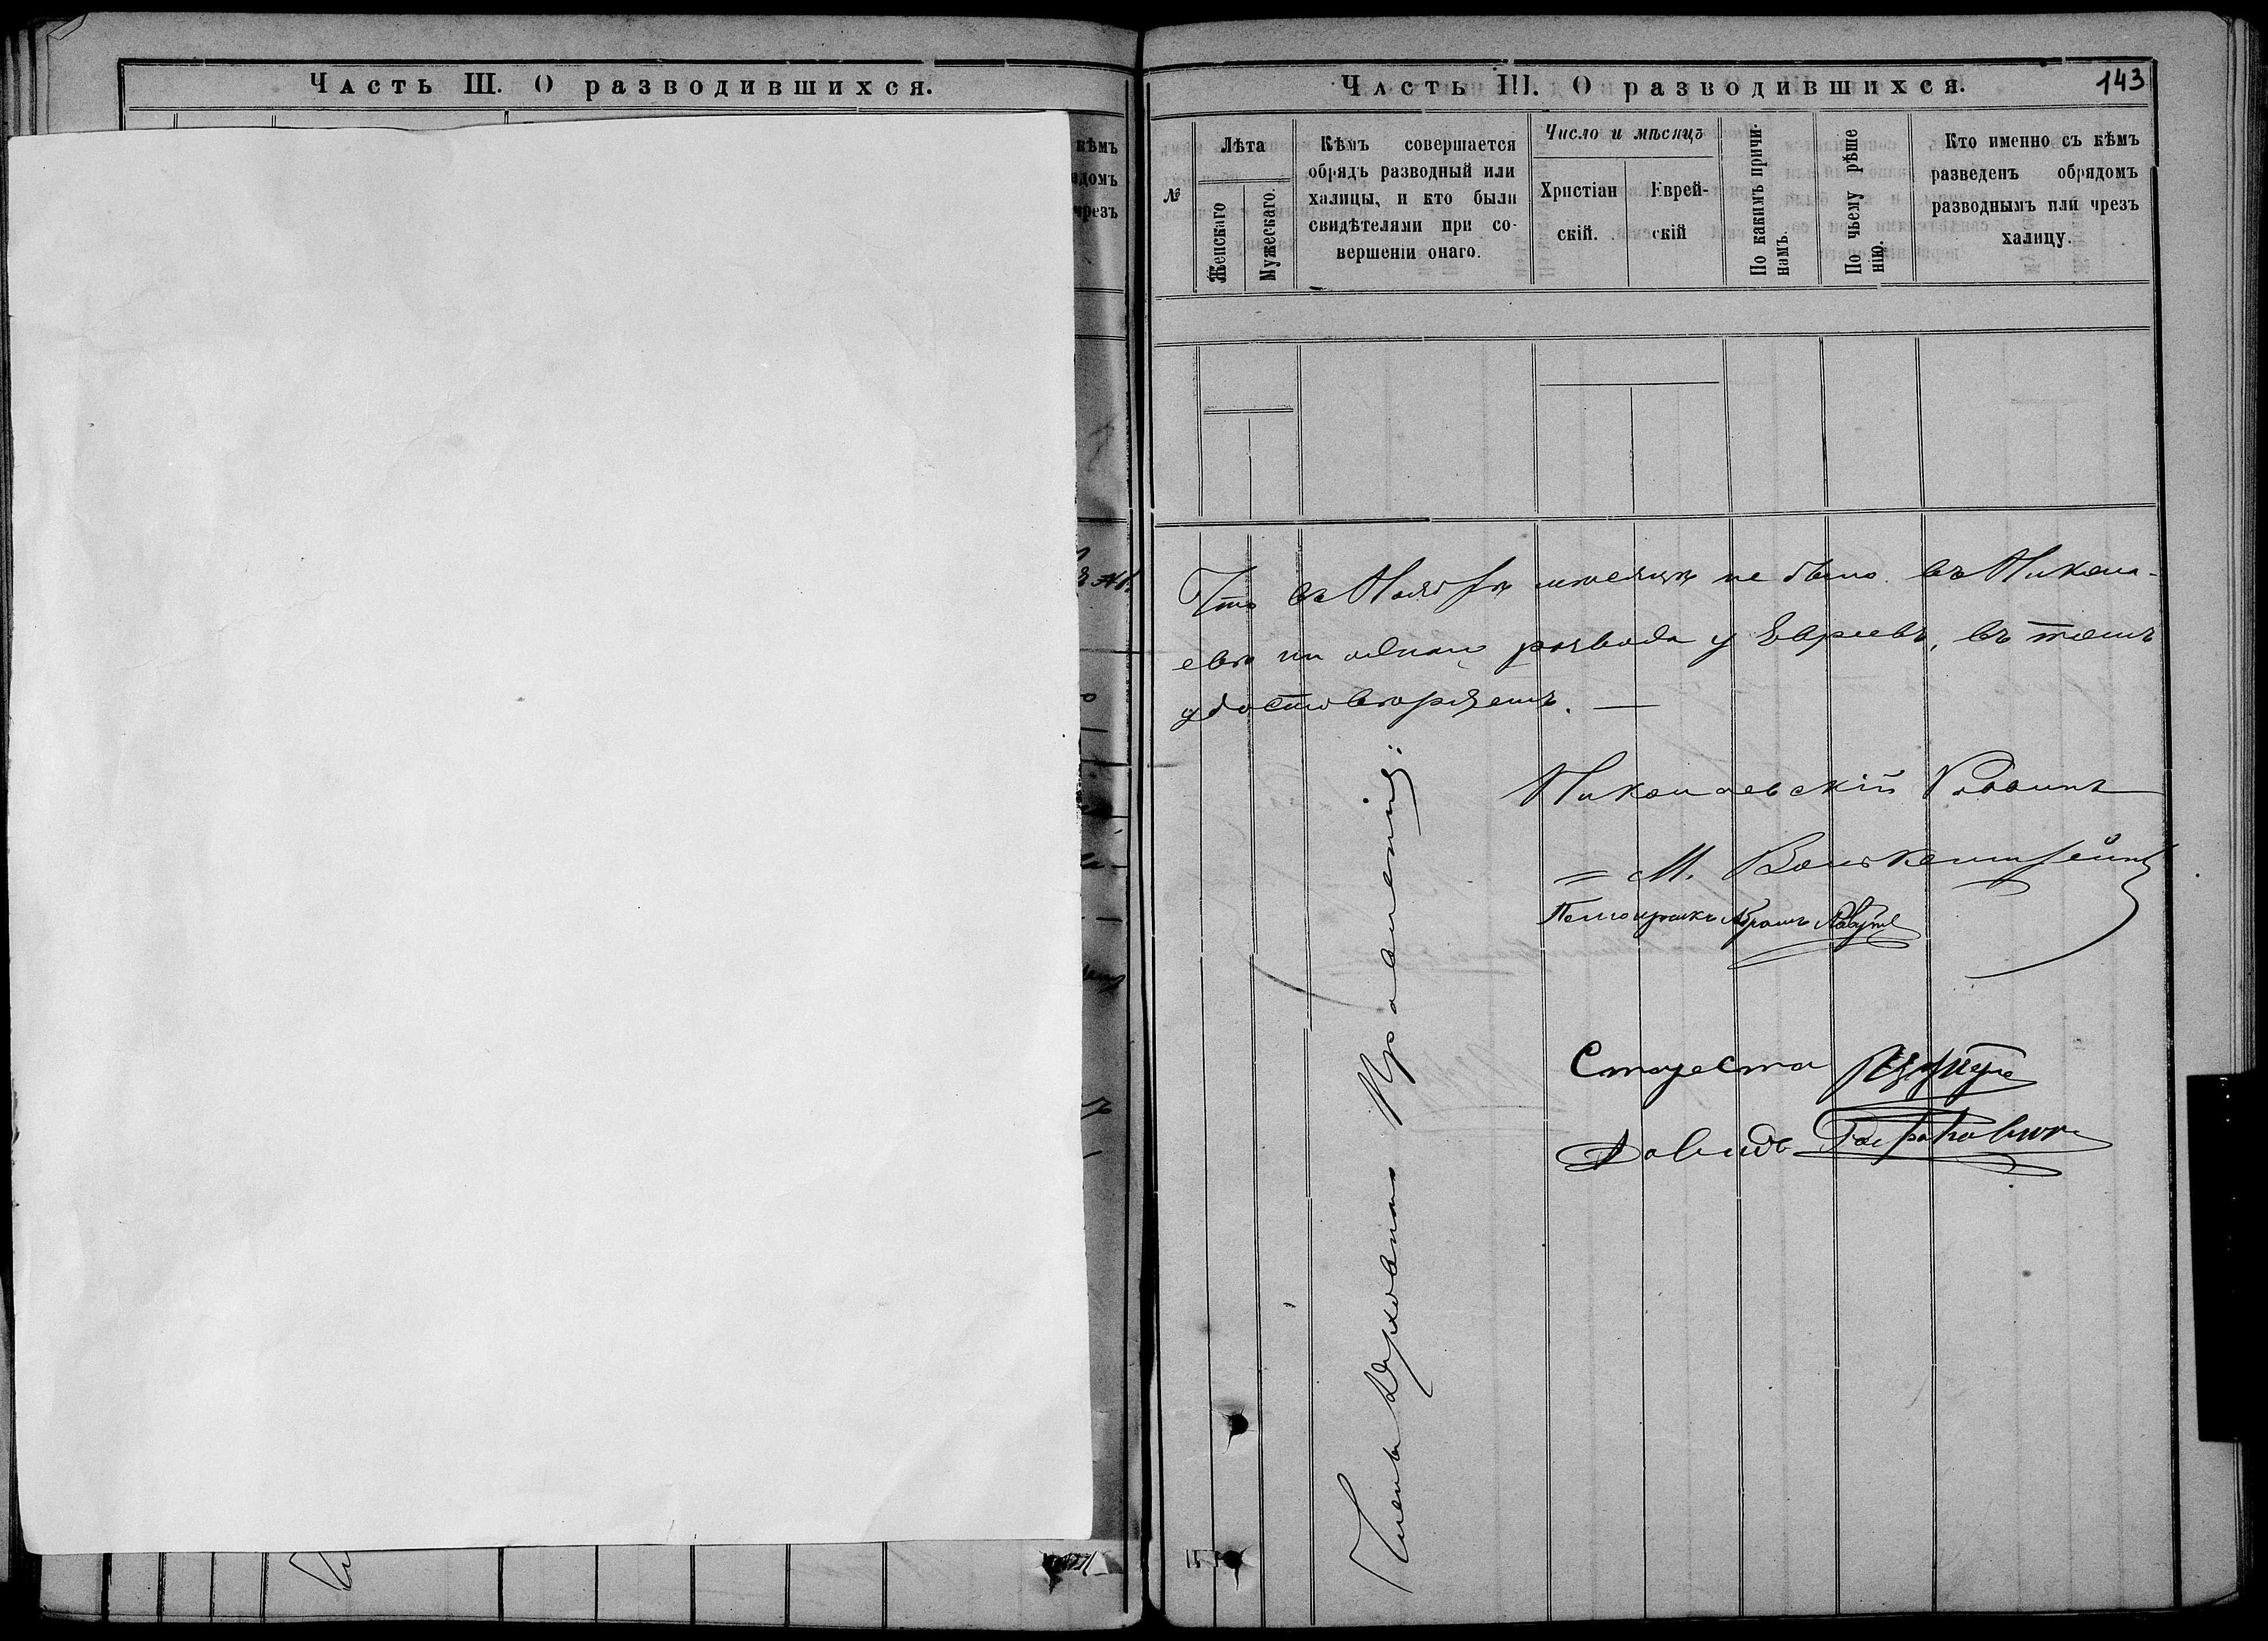 Часть III. О разводившихся.
кѣмъ
чрезъ
Часть III. О разводившихся.
143
№
Лѣта
Женскаго
Мужескаго.
Кѣмъ совершается
обрядъ разводный или
халицы, и кто были
свидѣтелями при со-
вершеніи онаго.
Число и мѣсяцъ
Христіан
скій.
Еврей-
скій
По какимъ причи-
намъ.
По чьему рѣше
нію.
Кто именно съ кѣмъ
разведенъ обрядомъ
разводнымъ или чрезъ
халицу.
Что въ Ноябрѣ мѣсяцѣ не было въ Никола-
евѣ ни одного развода у Евреевъ, въ томъ
удостовѣряемъ. —
Николаевскій Раввинъ
М.
Помощникъ Абрамъ
Члены Духовнаго Правленія:
Староста
Давидъ